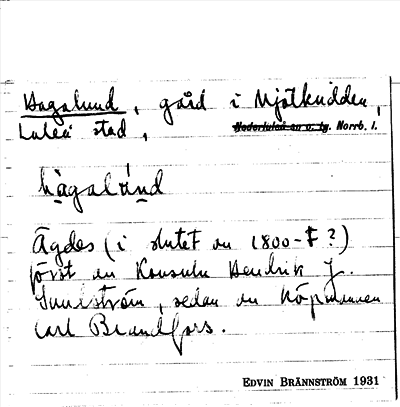 Hagalund, gård i Mjölkudden,
Luleå stad, Nederluleå sn o. tg. Norrb. l.
hagalund
Ägdes (i slutet av 1800-t?)
först av Konsuln Hendrik J.
Sundström, sedan av köpmannen
Carl Brandfors.
EDVIN BRÄNNSTRÖM 1931